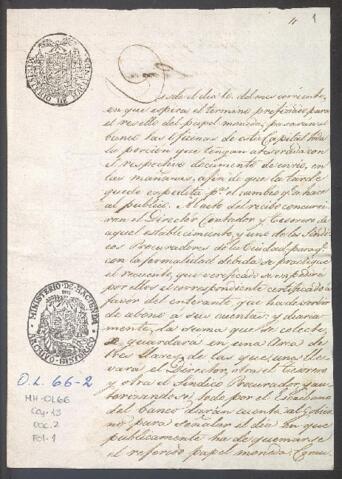 4 1
Desde el dia 16 del mes corriente,
en que espira el termino prefixado para
el resello del papel moneda, pasaran al
banco las Oficinas de esta Capital toda
la porcion que tengan atesorada con
el respectivo documento de envio, en
las mañanas, afin de que la tarde
quede expedita p.ª el cambio q.e la hace
al publico. Al acto del recibo concurri
ran el Director Contador y Tesorero de
aquel establecimiento, y uno de los Sindi
cos Procuradores de la Ciudad para q.e
con la formalidad debida se practique
el recuento, que verificado se expedirá
por ellos el correspondiente certificado a
favor del enterante, que ha de servir
de abono a sus cuentas; y diaria
mente, la suma que se colecte,
se guardará en una Arca de
tres llaves, de las que, una lle
vará el Director, otra el Tesorero
y otra el Sindico Procurador, y au
torizandose todo por el Escribano
del Banco darán cuenta al Gobier
no para señalar el dia en que
publicamente ha de quemarse
el referido papel moneda. Comu
MINISTERIO DE HACIENDA
ARCHIVO HISTORICO
O.L. 66-2
MH-OL66
Caj. 13
Doc. 2
Fol. 1